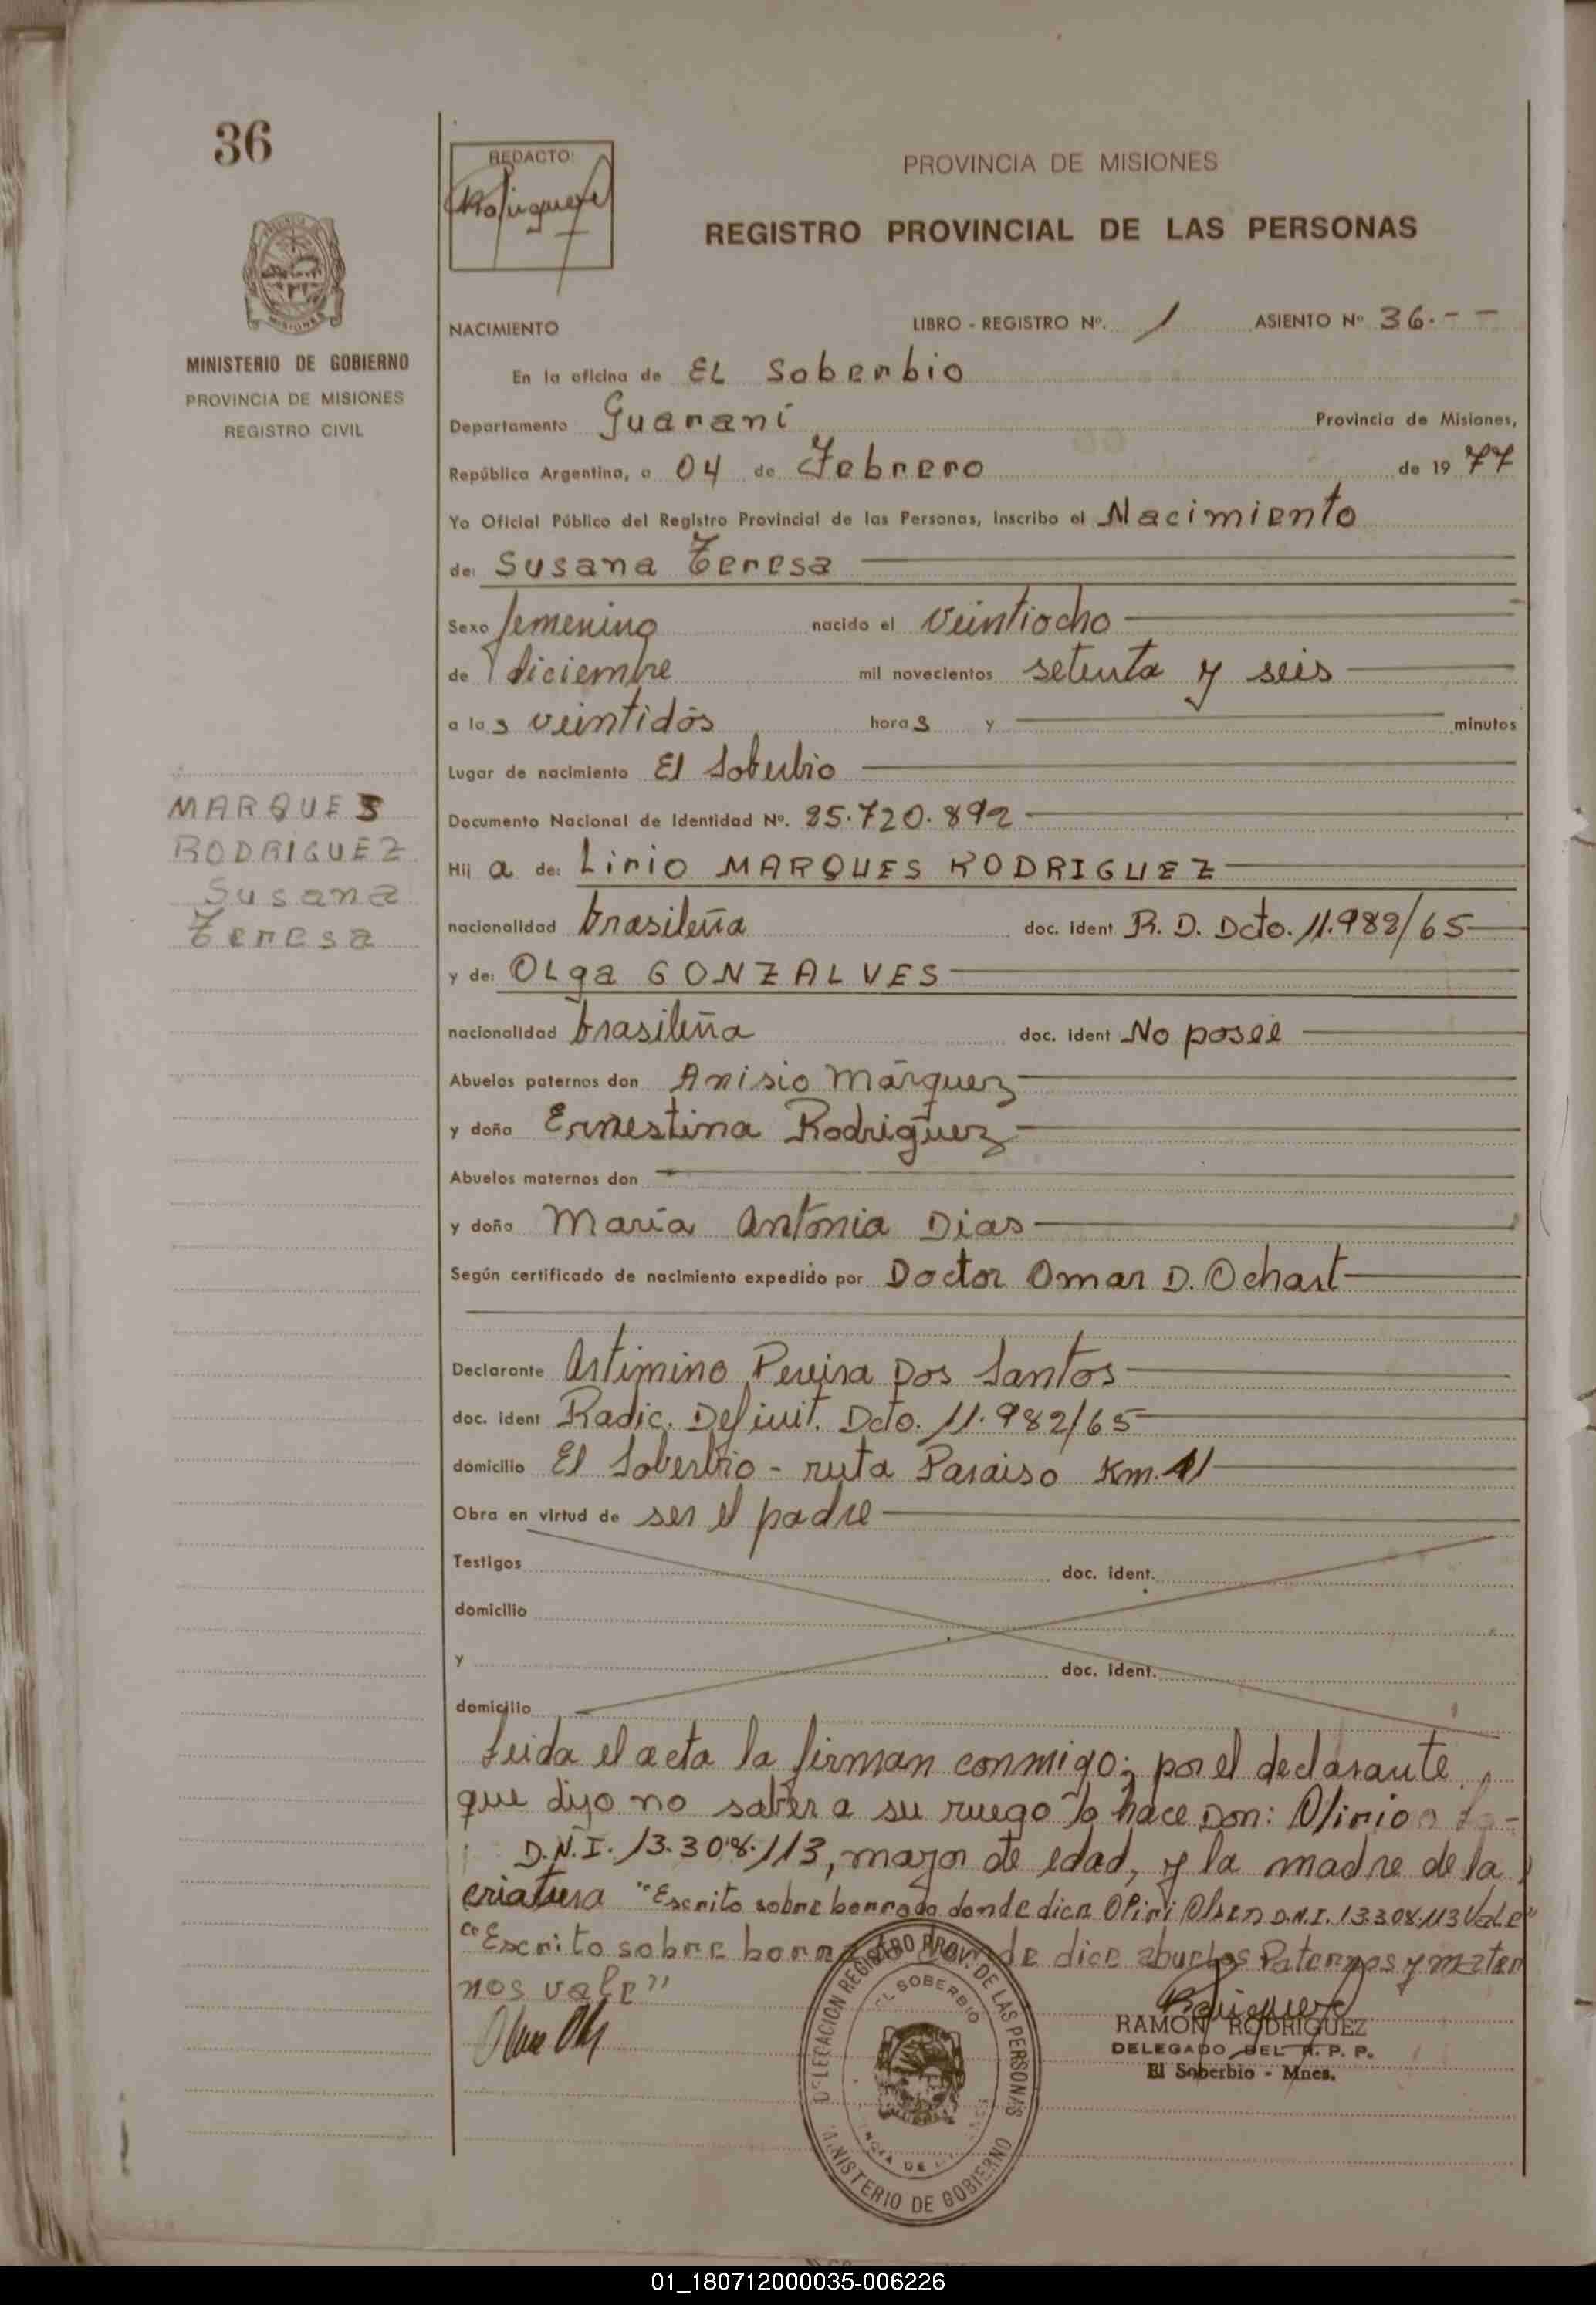 36
REDACTO:
PROVINCIA DE MISIONES
REGISTRO PROVINCIAL DE LAS PERSONAS
MINISTERIO DE GOBIERNO
PROVINCIA DE MISIONES
REGISTRO CIVIL
NACIMIENTO LIBRO - REGISTRO Nº. 1 ASIENTO Nº 36.--
En la oficina de EL Soberbio
Departamento Guaraní Provincia de Misiones,
República Argentina, a 04 de Febrero de 1977
Yo Oficial Público del Registro Provincial de las Personas, inscribo el Nacimiento
de: Susana Teresa
Sexo femenino nacido el veintiocho
de diciembre mil novecientos setenta y seis
a las veintidós horas y minutos
Lugar de nacimiento El Soberbio
MARQUES
RODRIGUEZ
Susana
Teresa
Documento Nacional de Identidad Nº. 25.720.892
Hija de: Lirio MARQUES RODRIGUEZ
nacionalidad brasileña doc. ident R. D. Dcto. 11.982/65
y de: OLga GONZALVES
nacionalidad brasileña doc. ident No posee
Abuelos paternos don Anisio Márquez
y doña Ernestina Rodriguez
Abuelos maternos don
y doña María Antonia Dias
Según certificado de nacimiento expedido por Doctor Omar D. Ochart
Declarante Artimino Pereira Dos Santos
doc. ident Radic. Definit. Dcto. 11.982/65
domicilio El Soberbio - ruta Paraiso Km. 11
Obra en virtud de ser el padre
Testigos doc. ident.
domicilio
y doc. ident.
domicilio
Leida el acta la firman conmigo; por el declarante
que dijo no saber a su ruego lo hace Don: Olirio
D.N.I. 13.308.113, mayor de edad, y la madre de la
criatura "Escrito sobre borrado donde dice Oliri Olsen D.N.I. 13.308.113 Vale"
"Escrito sobre borrado donde dice abuelos Paternos y mater
nos vale"
DELEGACION REGISTRO PROV. DE LAS PERSONAS
EL SOBERBIO
MINISTERIO DE GOBIERNO
RAMON RODRIGUEZ
DELEGADO DEL R. P. P.
El Soberbio - Mnes.
01_180712000035-006226